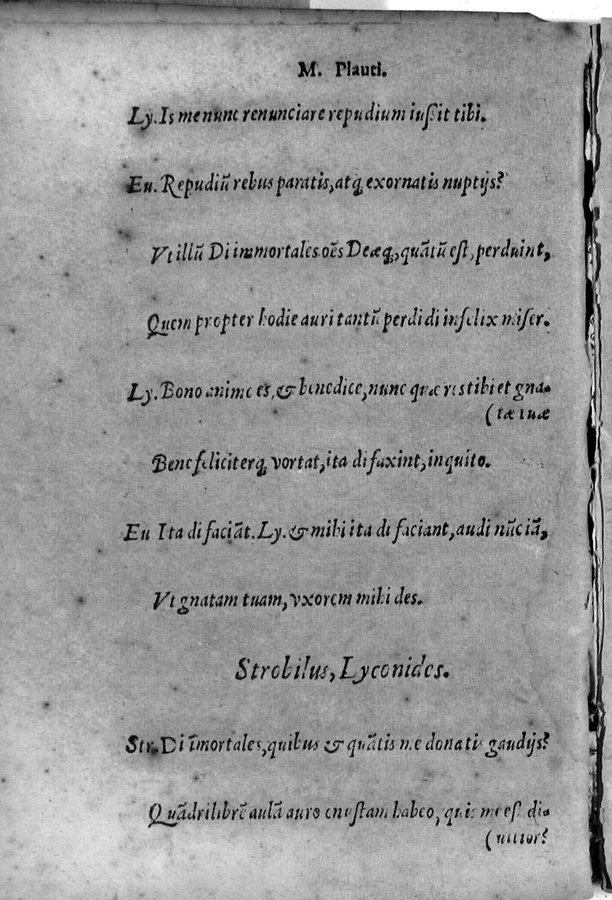 M. Plauti.
Ly. Is me nunc renunciare repudium iussit tibi.
Eu. Repudiũ rebus paratis, atq; exornatis nuptijs?
Vt illũ Di immortales oẽs Deæq;, quãtũ est, perduint,
Quem propter hodie auri tantũ perdidi infelix miser.
Ly. Bono animo es, & benedice, nunc quæ res tibi et gna-
(tæ tuæ
Bene feliciterq; vortat, ita di faxint, inquito.
Eu Ita di faciãt. Ly. & mihi ita di faciant, audi nũc iã,
Vt gnatam tuam, vxorem mihi des.
Strobilus, Lyconides.
Str. Di ĩmortales, quibus & quãtis me donatis gaudijs?
Quãdrilibrẽ aulã auro onustam habeo, quis me est di-
(uitior?